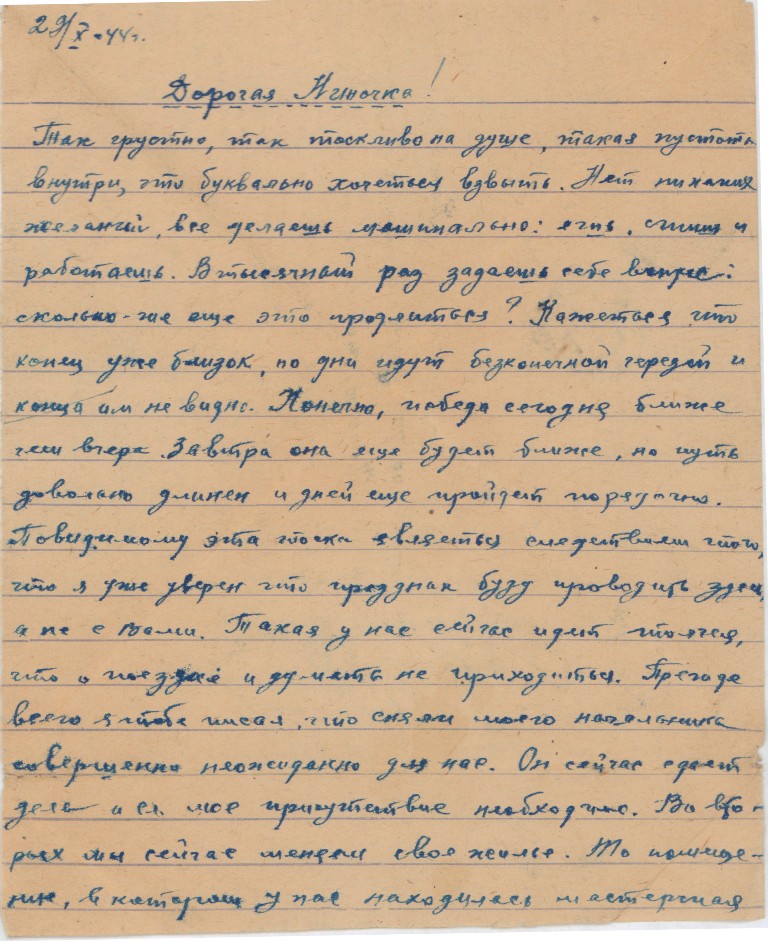 29/X-44г.
Дорогая Ниночка!
Так грустно, так тоскливо на душе, такая пустота
внутри, что буквально хочеться взвыть. Нет никаких
желаний, все делаешь машинально: ешь, спишь и
работаешь. В тысячный раз задаешь себе вопрос:
сколько-же еще это продлиться? Кажеться что
конец уже близок, но дни идут безконечной чередой и
конца им не видно. Конечно, победа сегодня ближе
чем вчера. Завтра она еще будет ближе, но путь
довольно длинен и дней еще пройдет порядочно.
Повидимому эта тоска являеться следствием того,
что я уже уверен что праздник буду проводить здесь,
а не с Вами. Такая у нас сейчас идет
что о поездке и думать не приходиться. Прежде
всего я тебе писал, что сняли моего начальника
совершенно неожиданно для нас. Он сейчас сдает
дела и мое присутствие необходимо. Во вто-
рых мы сейчас меняем свое жилье. То помеще-
ние, в котором у нас находилась мастерская